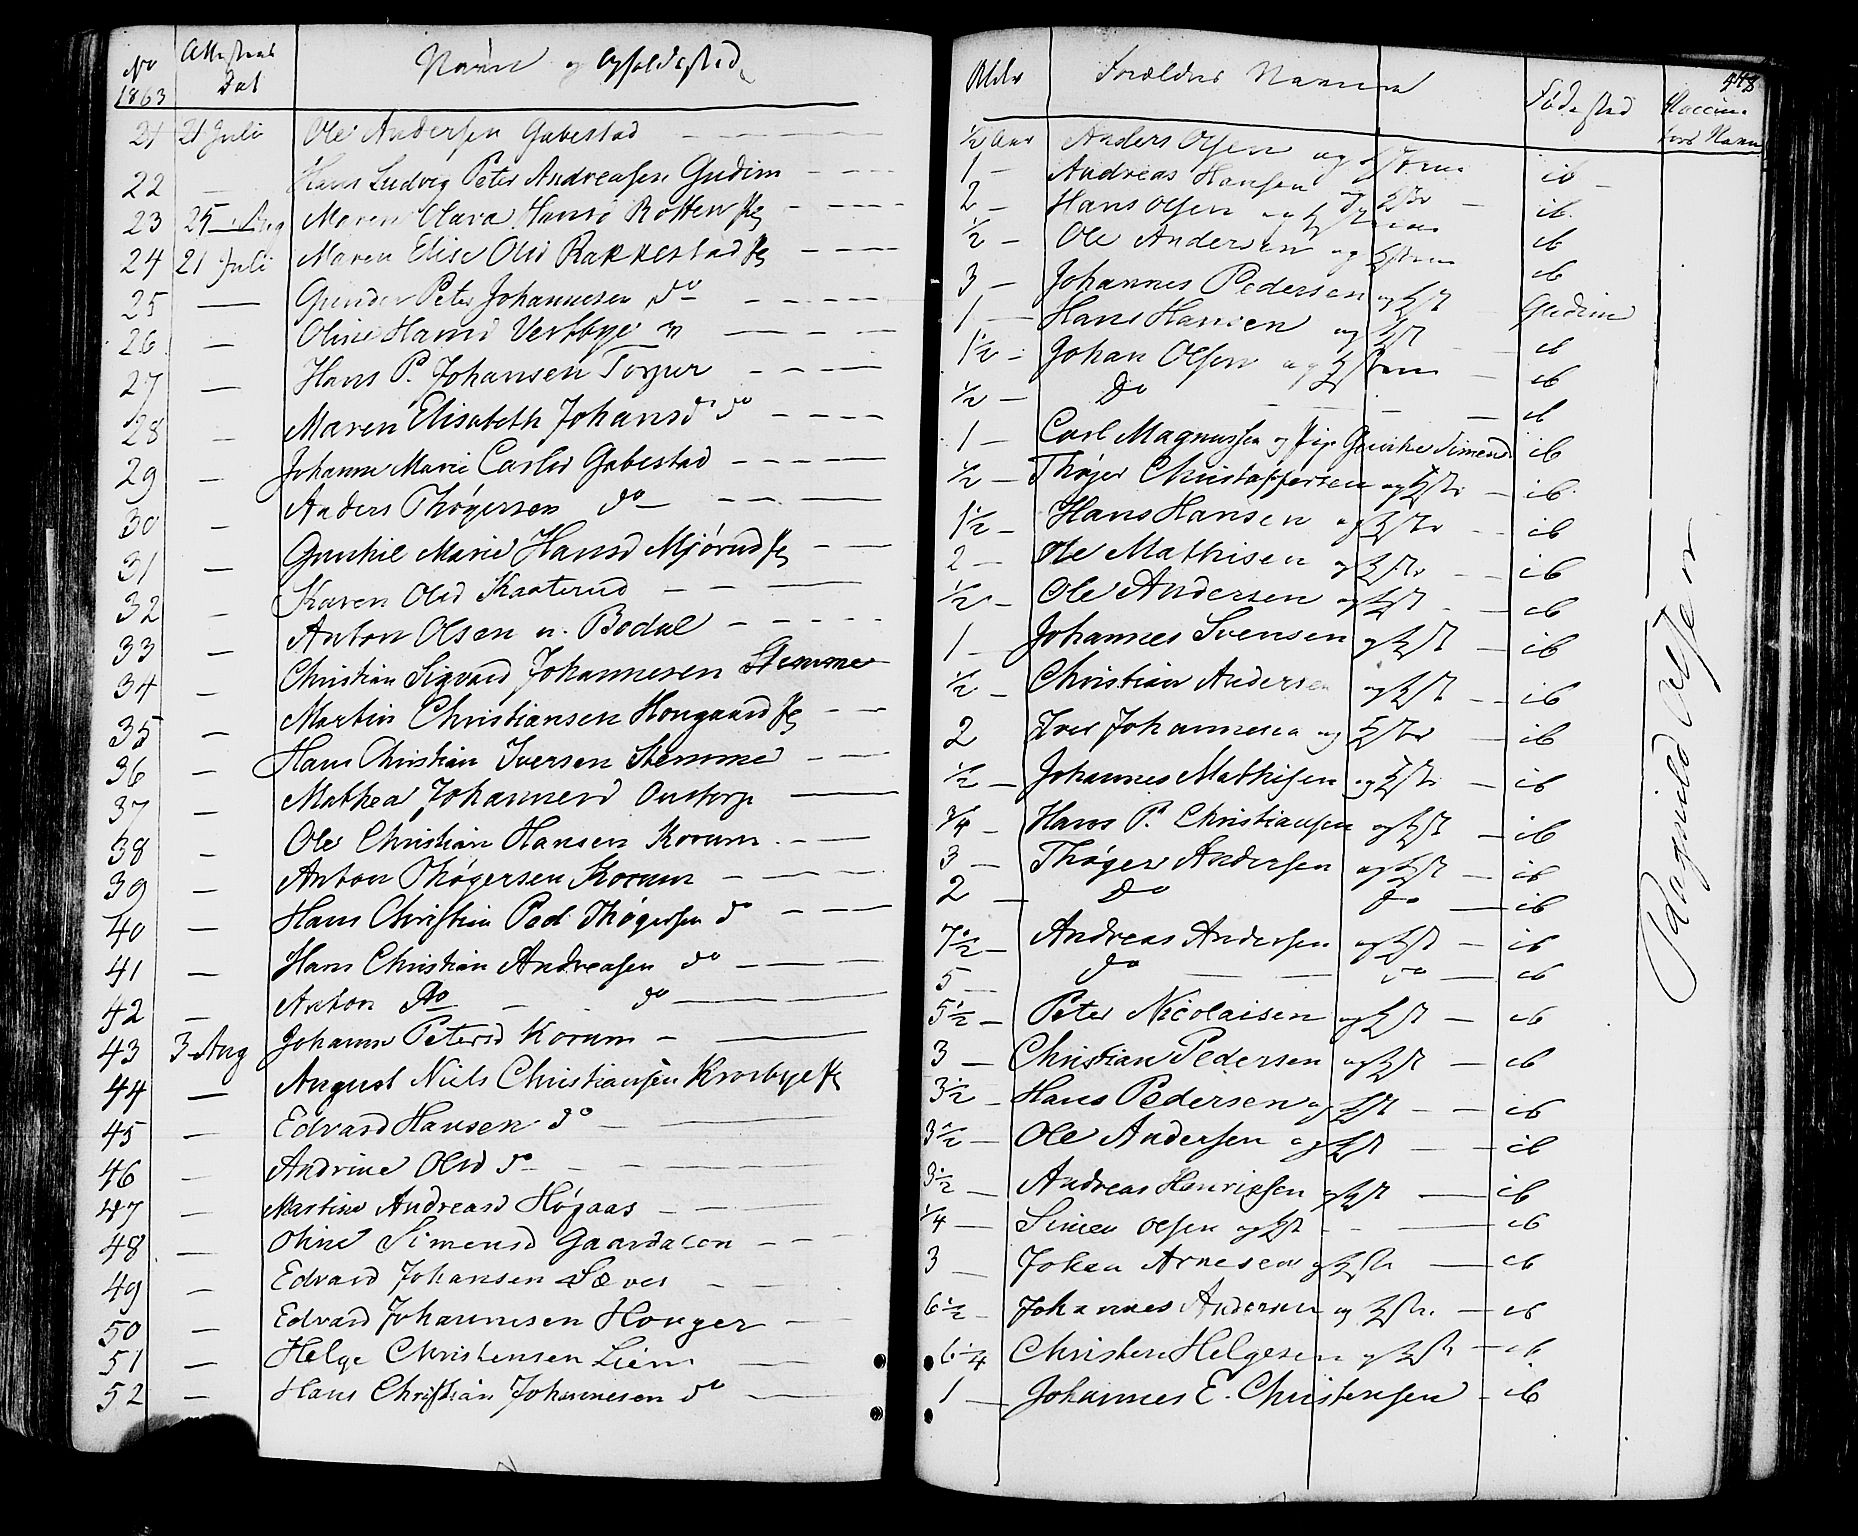 No 1863 | Attestens Dat | Navne og Opholdssted
21 | 21 Juli | Ole Andersen Gabestad
22 | — | Hans Ludvig Peter Andreasen Gudim
23 | 25 Aug | Maren Clara Hansd Rotten
24 | 21 Juli | Maren Elise Olsd Rakkestad
25 | — | Gunder Peter Johannesen do
26 | — | Oline Hansd Vestbye
27 | — | Hans P. Johansen Torper
28 | — | Maren Elisabeth Johansd do
29 | — | Johanne Marie Carlsd Gabestad
30 | — | Anders Thøgersen do
31 | — | Gunhil Marie Hansd Mjørud
32 | — | Karen Olsd Kaaterud
33 | — | Anton Olsen n. Bodal
34 | — | Christian Sigvard Johannesen Stemme
35 | — | Martin Christiansen Hougaard
36 | — | Hans Christian Iversen Stemme
37 | — | Mathea Johannesd Onstorp
38 | — | Ole Christian Hansen Korum
39 | — | Anton Thøgersen Korum
40 | — | Hans Christian Ped Thøgersen do
41 | — | Hans Christian Andreasen do
42 | — | Anton Do — do
43 | 3 Aug | Johanne Petersd Korum
44 | — | August Niels Christiansen Krosbye
45 | — | Edvard Hansen do
46 | — | Andrine Olsd do
47 | — | Martine Andreasd Høgaas
48 | — | Oline Simensd Gaardalen
49 | — | Edvard Johansen Sæves
50 | — | Edvard Johannesen Houger
51 | — | Helge Christensen Liern
52 | — | Hans Christian Johannesen do
448
Alder | Forældres Navne | Fødested | Vaccina-
tørs Navn
½ Aar | Anders Olsen og Hstru | ib
1 — | Andreas Hansen og Hstr | ib.
2 — | Hans Olsen og Hstru | ib
½ — | Ole Andersen og Hstru | ib
3 — | Johannes Pedersen og Hst | Gudim
1 — | Hans Hansen og Hst | ib
1½ — | Johan Olsen og Hstru | ib
½ — | Do | ib
1 — | Carl Magnussen og Pige Gunhild Simensd | ib
½ — | Thøger Christoffersen og Hstr | ib.
1½ — | Hans Hansen og Hstr | ib
2 — | Ole Mathisen og Hstr | ib
½ — | Ole Andersen og Hst | ib
1 — | Johannes Svensen og Hst | ib
½ — | Christian Andersen og Hst | ib
2 | Iver Johannesen og Hstr | ib
½ — | Johannes Mathisen og Hstr | ib
¾ — | Hans P. Christiansen og Hst | ib
3 — | Thøger Andersen og Hst | ib
2 — | Do do | ib
7½ — | Andreas Andersen og Hst | ib
5 — | do do | ib
5½ — | Peter Nicolaisen og Hst | ib
3 — | Christian Pedersen og Hst | ib
3½ — | Hans Pedersen og Hst | ib
3½ — | Ole Andersen og Hst | ib
3½ — | Andreas Henriksen og Hst | ib
¼ — | Simen Olsen og Hst | ib
3 — | Johan Arnesen og Hstr | ib
6½ — | Johannes Andersen og Hstr. | ib
6¼ | Christen Helgesen og Hstr | ib
1 — | Johannes E. Christensen | ib
Ragnild Olsen